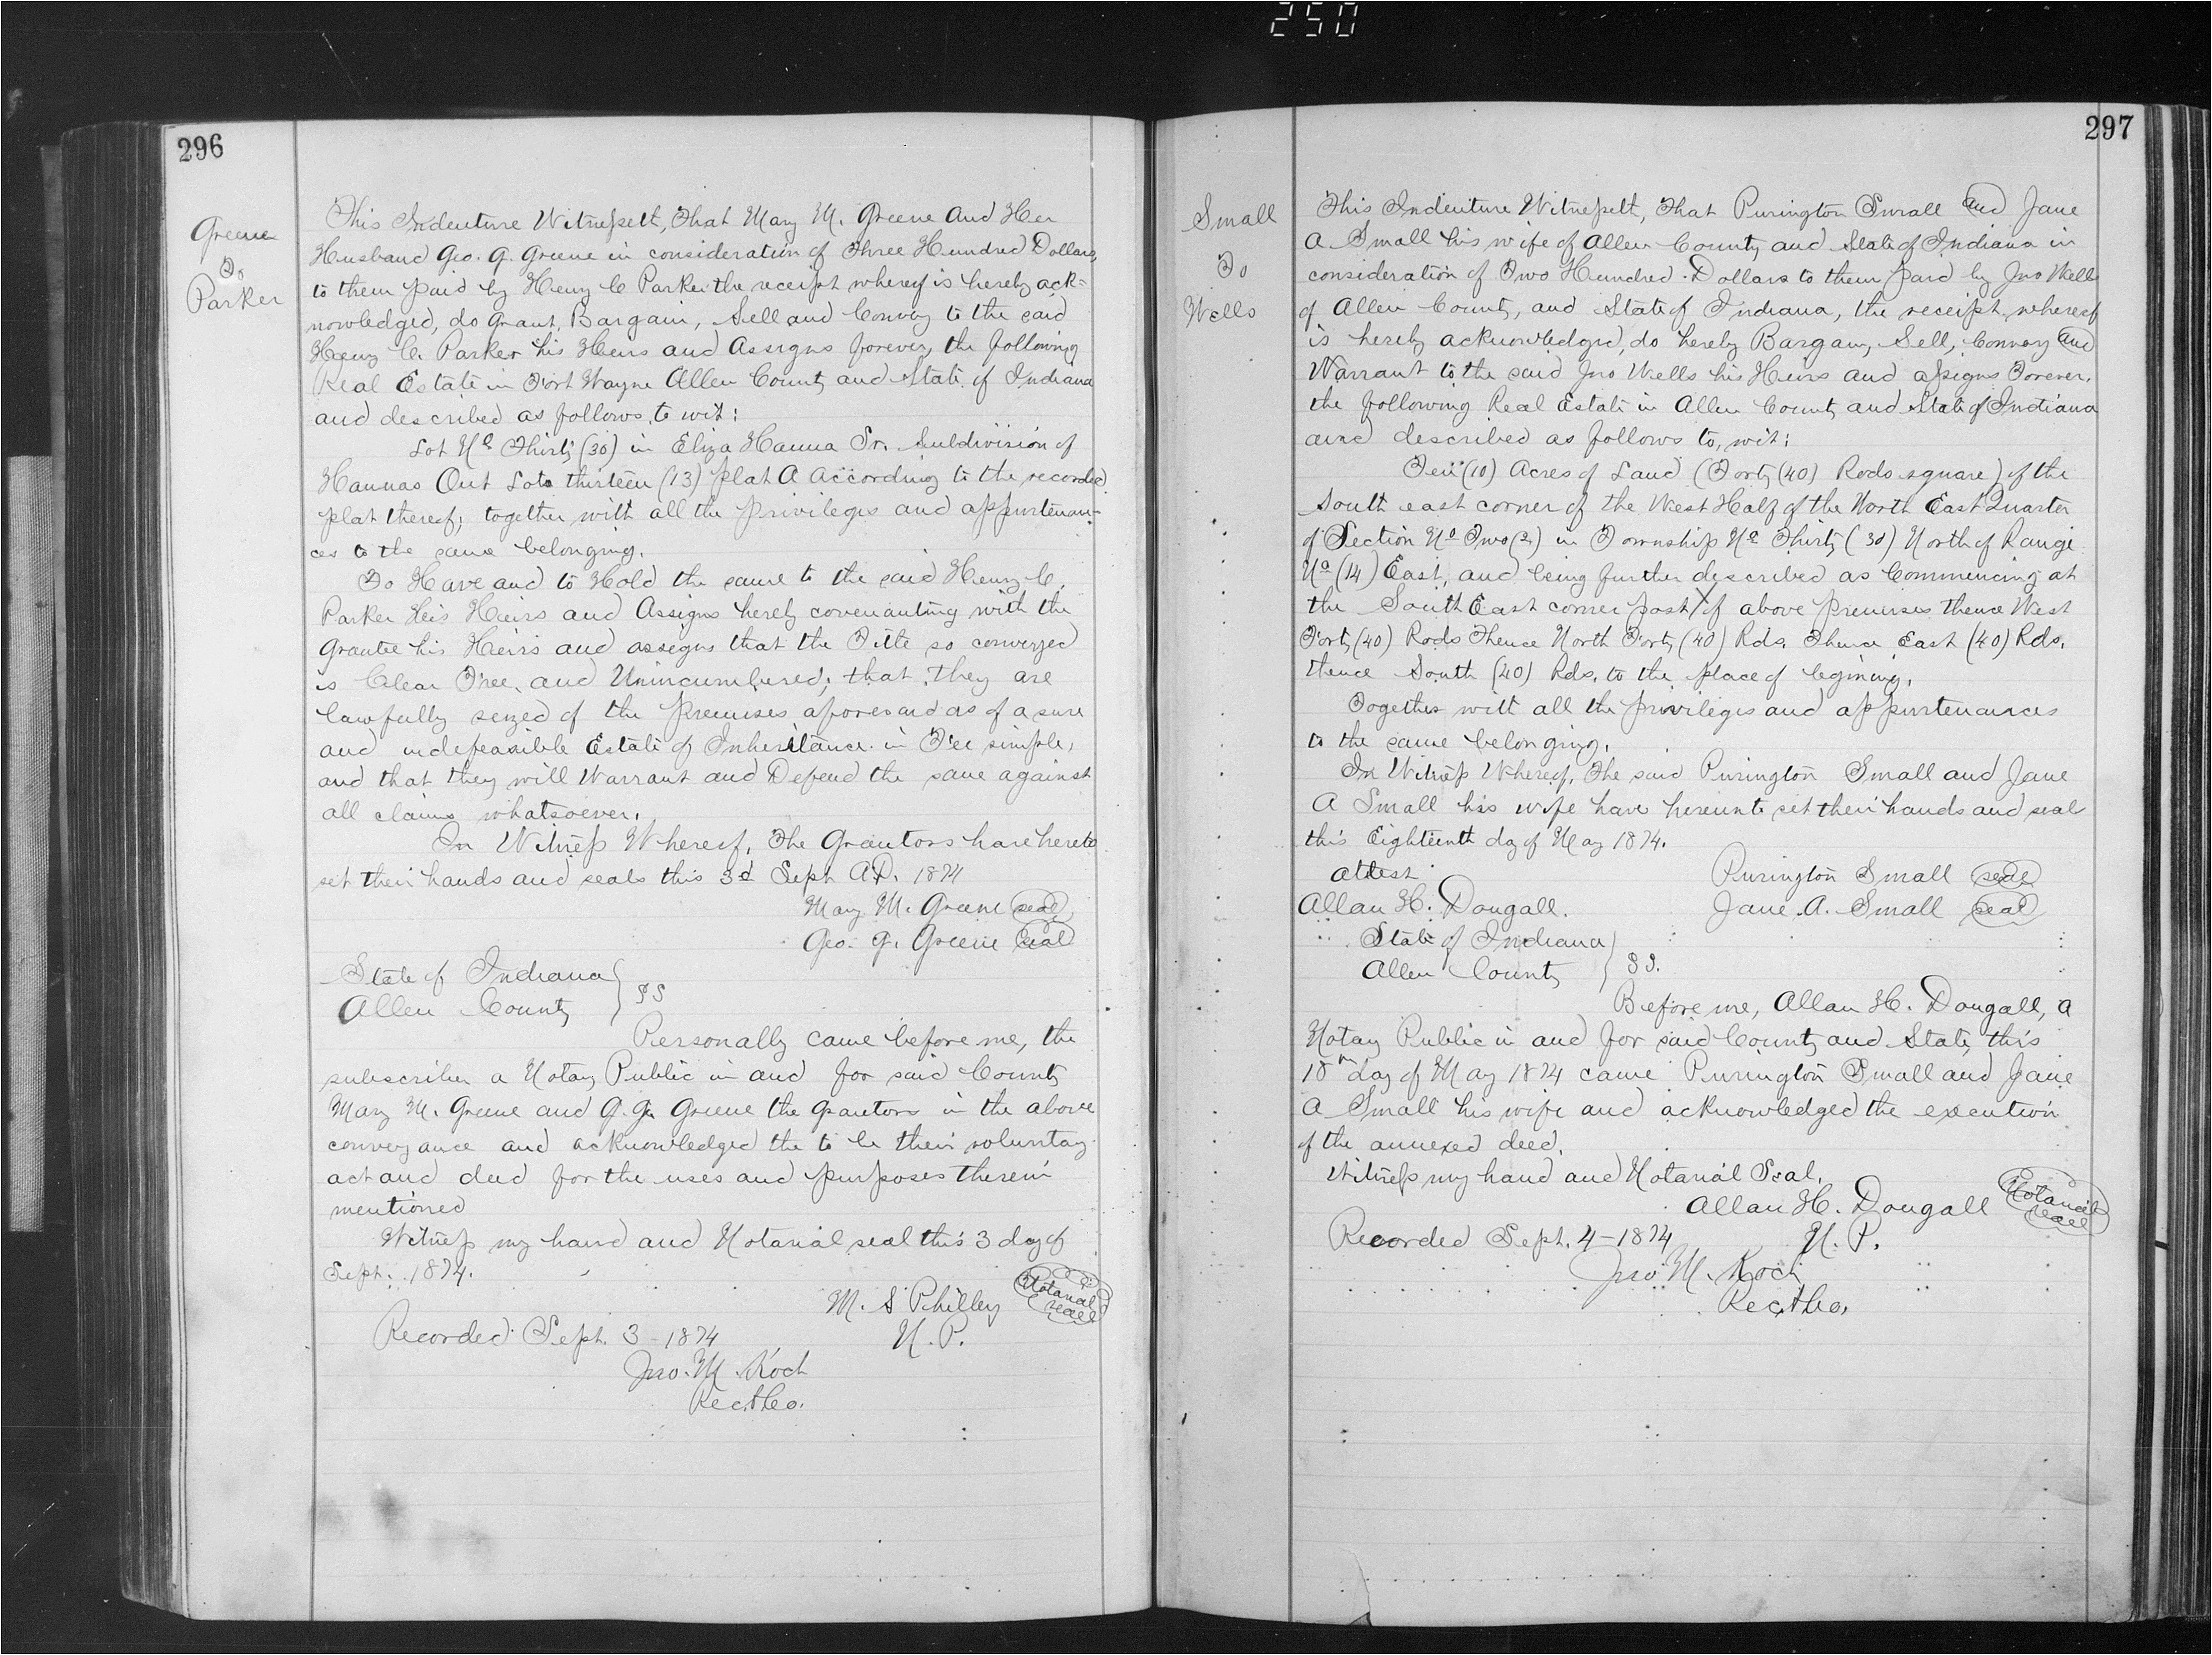 250
296
Greene
To
Parker
This Indenture Witnesseth, That Mary M. Greene and Her
Husband Geo. G. Greene in consideration of Three Hundred Dollars,
to them paid by Henry C Parker the receipt whereof is hereby ack=
nowledged, do Grant, Bargain, Sell and Convey to the said
Henry C. Parker his Heirs and Assigns forever, the following
Real Estate in Fort Wayne Allen County and State of Indiana
and described as follows to wit:
Lot No Thirty (30) in Eliza Hanna Sr. Subdivision of
Hannas Out Lots thirteen (13) plat A According to the recorded
plat thereof, together with all the privileges and appurtenan-
ces to the same belonging.
To Have and to Hold the same to the said Henry C.
Parker His Heirs and Assigns hereby covenanting with the
Grantee his Heirs and assigns that the Title so conveyed
is Clear Free, and Unincumbered; that they are
lawfully seized of the premises aforesaid as of a sure
and indefeasible Estate of Inheritance in Fee simple,
and that they will Warrant and Defend the same against
all claims whatsoever.
In Witness Whereof, The Grantors have hereto
set their hands and seals this 3d Sept A.D. 1874
Mary M. Greene seal
Geo. G. Greene seal
State of Indiana
Allen County } SS
Personally came before me, the
subscriber a Notary Public in and for said County
Mary M. Greene and G. G. Greene the Grantors in the above
conveyance and acknowledged the to be their voluntary
act and deed for the uses and purposes therein
mentioned
Witness my hand and Notarial seal this 3 day of
Sept. 1874.
M. S Philley Notarial seal
Recorded Sept. 3 - 1874 N. P.
Jno. M. Koch
Rec. Alleo.
297
Small
To
Wells
This Indenture Witnesseth, That Purington Small and Jane
A Small his wife of Allen County and State of Indiana in
consideration of Two Hundred Dollars to them paid by Jno Wells
of Allen County, and State of Indiana, the receipt whereof
is hereby acknowledged, do hereby Bargain, Sell, Convey and
Warrant to the said Jno Wells his Heirs and assigns Forever,
the following Real Estate in Allen County and State of Indiana
and described as follows to, wit:
Ten (10) Acres of Land (Forty (40) Rods square) of the
South east corner of the West Half of the North East Quarter
of Section No Two (2) in Township No Thirty (30) North of Range
No (14) East, and being further described as Commencing at
the South East corner post of above premises thence West
Forty (40) Rods Thence North Forty (40) Rds. Thence East (40) Rds.
thence South (40) Rds. to the place of begining.
Together with all the privileges and appurtenances
to the same belonging.
In Witness Whereof, The said Purington Small and Jane
A Small his wife have hereunto set their hands and seal
this Eighteenth day of May 1874.
Attest Purington Small seal
Allan H. Dougall. Jane A. Small seal
State of Indiana
Allen County } SS.
Before me, Allan H. Dougall, a
Notary Public in and for said County and State, this
18th day of May 1874 came Purington Small and Jane
A Small his wife and acknowledged the execution
of the annexed deed.
Witness my hand and Notarial Seal.
Allan H. Dougall Notarial seal
Recorded Sept. 4 - 1874 N. P.
Jno M. Koch
Rec. Alleo.